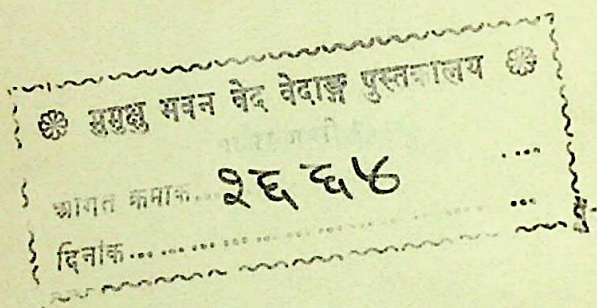 ❁ मुमुक्षु भवन वेद वेदाङ्ग पुस्तकालय ❁
आगत क्रमाक... २६६४ ...
दिनांक... ...